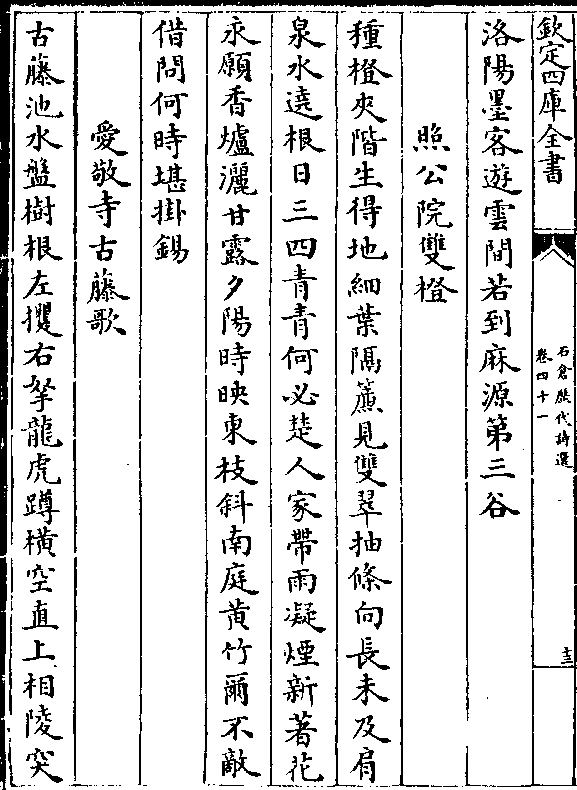 欽定四庫全書
石倉歷代詩選
卷四十一
十三
洛陽墨客遊雲間若到麻源第三谷
照公院雙橙
種橙夾階生得地細葉隔簾見雙翠抽條向長未及肩
泉水遶根日三四青青何必楚人家帶雨凝煙新著花
永願香爐灑甘露夕陽時映東枝斜南庭黄竹爾不敵
借問何時堪掛錫
愛敬寺古藤歌
古藤池水盤樹根左攫右拏龍虎蹲橫空直上相陵突